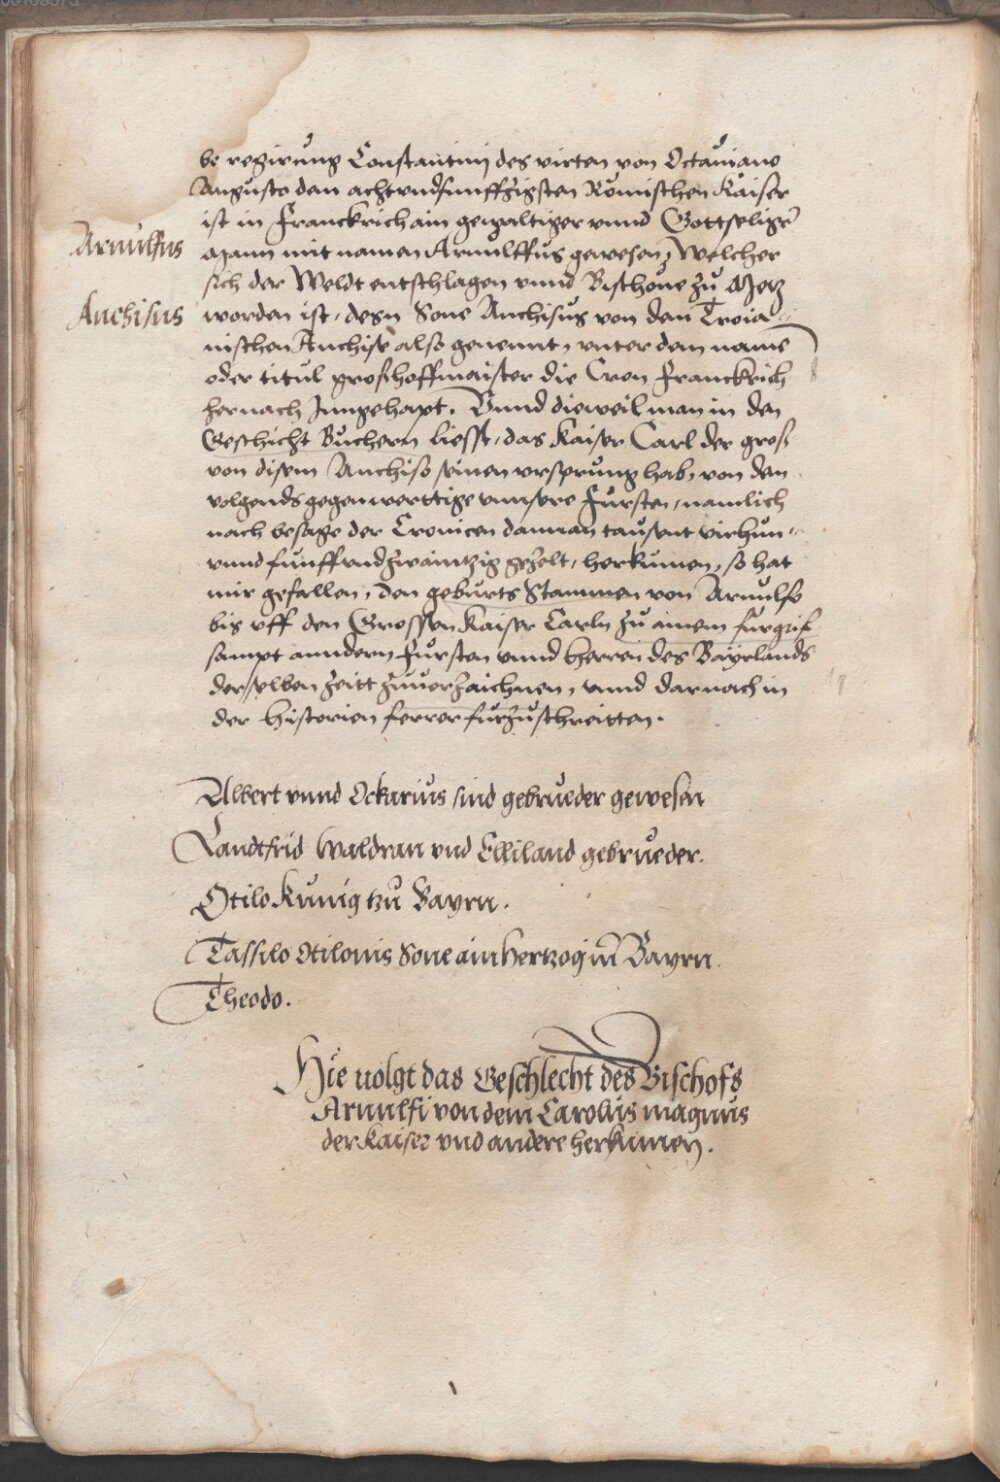 be regirung Constantinj des virten von Octauiano
Augusto den achtvndfunffzigsten Römischen Kaiser
ist in Franckrich ain gewaltiger vnnd Gottseliger
Arnulfus
Mann mit namen Arnulffus gewesen, Welcher
sich der Weldt entschlagen vnnd Bischoue zů Metz
Anchisus
worden ist, desn Sone Anchisus von dem Troia-
nischen Anchise also genennt, vnter dem name
oder titul groshoffmaister die Cron Franckrich
hernach Inngehapt. Vnnd dieweil man in den
Geschicht Buchern liesst, das Kaiser Carl der gros
von disem Anchiso seinen vrsprung hab, von dem
volgends gegenwerttige vnnsere Fursten, namlich
nach besage der Cronicen da man tausent virhun-
vnnd funffvndzwaintzig gezelt, herkumen, so hat
mir gefallen, den geburts Stammen von Arnulfo
bis vff den Grossen Kaiser Carln zů ainem furgrif
sampt anndern Fürsten vnnd Herren des Bayrlands
derselben zeitt zuuerzaichnen, vnnd darnach in
der Historien ferrer furzuschreitten.
Albert vnnd Ockarius sind gebrueder gewesen
Landtfrid Waldran vnd Elliland gebrueder.
Otilo Kunig tzů Bayrn.
Tassilo Otilonis Sone ain hertzog in Bayrn.
Theodo.
Hie uolgt das Geschlecht des Bischofs
Arnulfi von dem Carolus magnus
der Kaiser vnd andere herkumen.